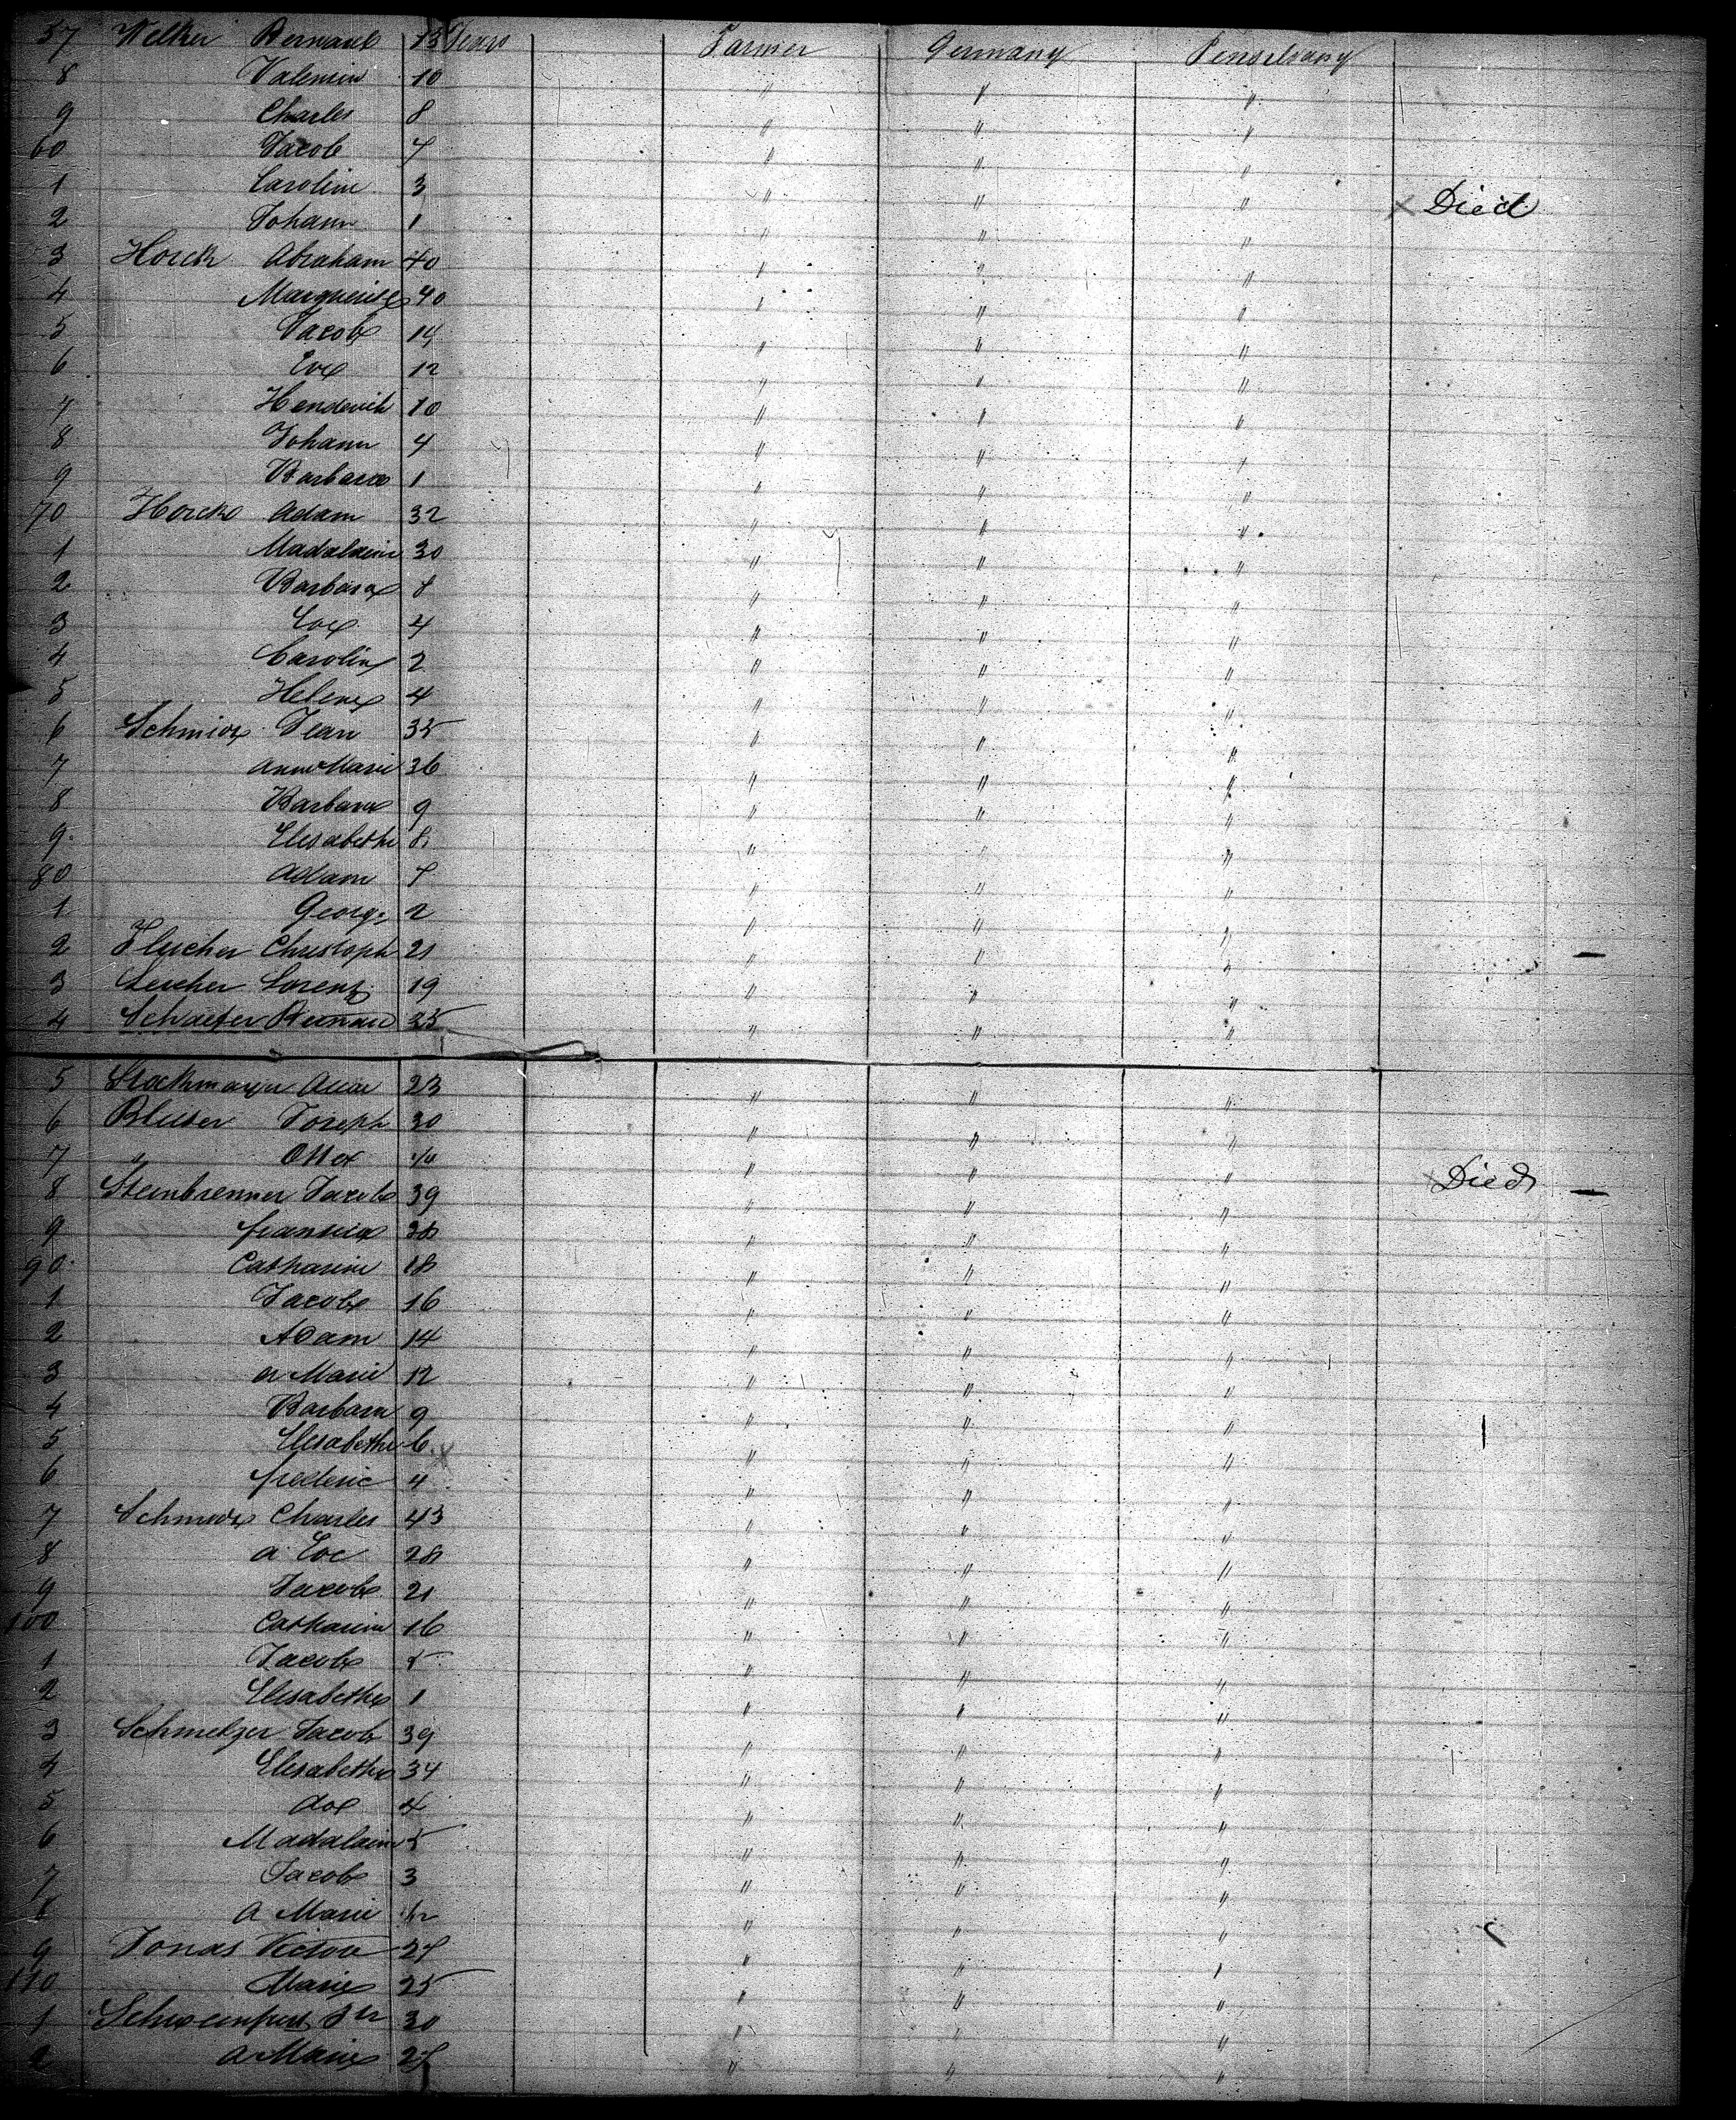 57 Welker Bernard 13 Years Farmer Germany Penselvany
8 Valentin 10 " " "
9 Charles 8 " " "
60 Jacob 7 " " "
1 Carolin 3 " " " Died
2 Johann 1 " " "
3 Horck Abraham 40 " " "
4 Marguerite 40 " " "
5 Jacob 14 " " "
6 Eve 12 " " "
7 Henderich 10 " " "
8 Johann 4 " " "
9 Barbara 1 " " "
70 Horck Adam 32 " " "
1 Madalaine 30 " " "
2 Barbara 8 " " "
3 Eve 4 " " "
4 Carolin 2 " " "
5 Helene 4 " " "
6 Schmidt Jean 35 " " "
7 Anne Marie 36 " " "
8 Barbara 9 " " "
9 Elisabethe 8 " " "
80 Adam 7 " " "
1 George 2 " " "
2 Fleicher Christoph 21 " " "
3 Lorenz 19 " " "
4 Schaefer Bernard 25 " " "
5 Stockmayer 23 " " "
6 Bluser Joseph 30 " " "
7 " " " " Died
8 Steinbrenner Jacob 39 " " "
9 38 " " "
90 Catharine 18 " " "
1 Jacob 16 " " "
2 Adam 14 " " "
3 a Marie 12 " " "
4 Barbara 9 " " "
5 Elisabethe 6 " " "
6 frederic 4 " " "
7 Schmidt Charles 43 " " "
8 a Eve 28 " " "
9 Jacob 21 " " "
100 Catharine 16 " " "
1 Jacob 5 " " "
2 Elisabethe 1 " " "
3 Schmelzer Jacob 39 " " "
4 Elisabethe 34 " " "
5 " " "
6 Madalaine 5 " " "
7 Jacob 3 " " "
8 a Marie " " "
9 Jonas Victor 27 " " "
110 Marie 25 " " "
1 30 " " "
2 a Marie 27 " " "